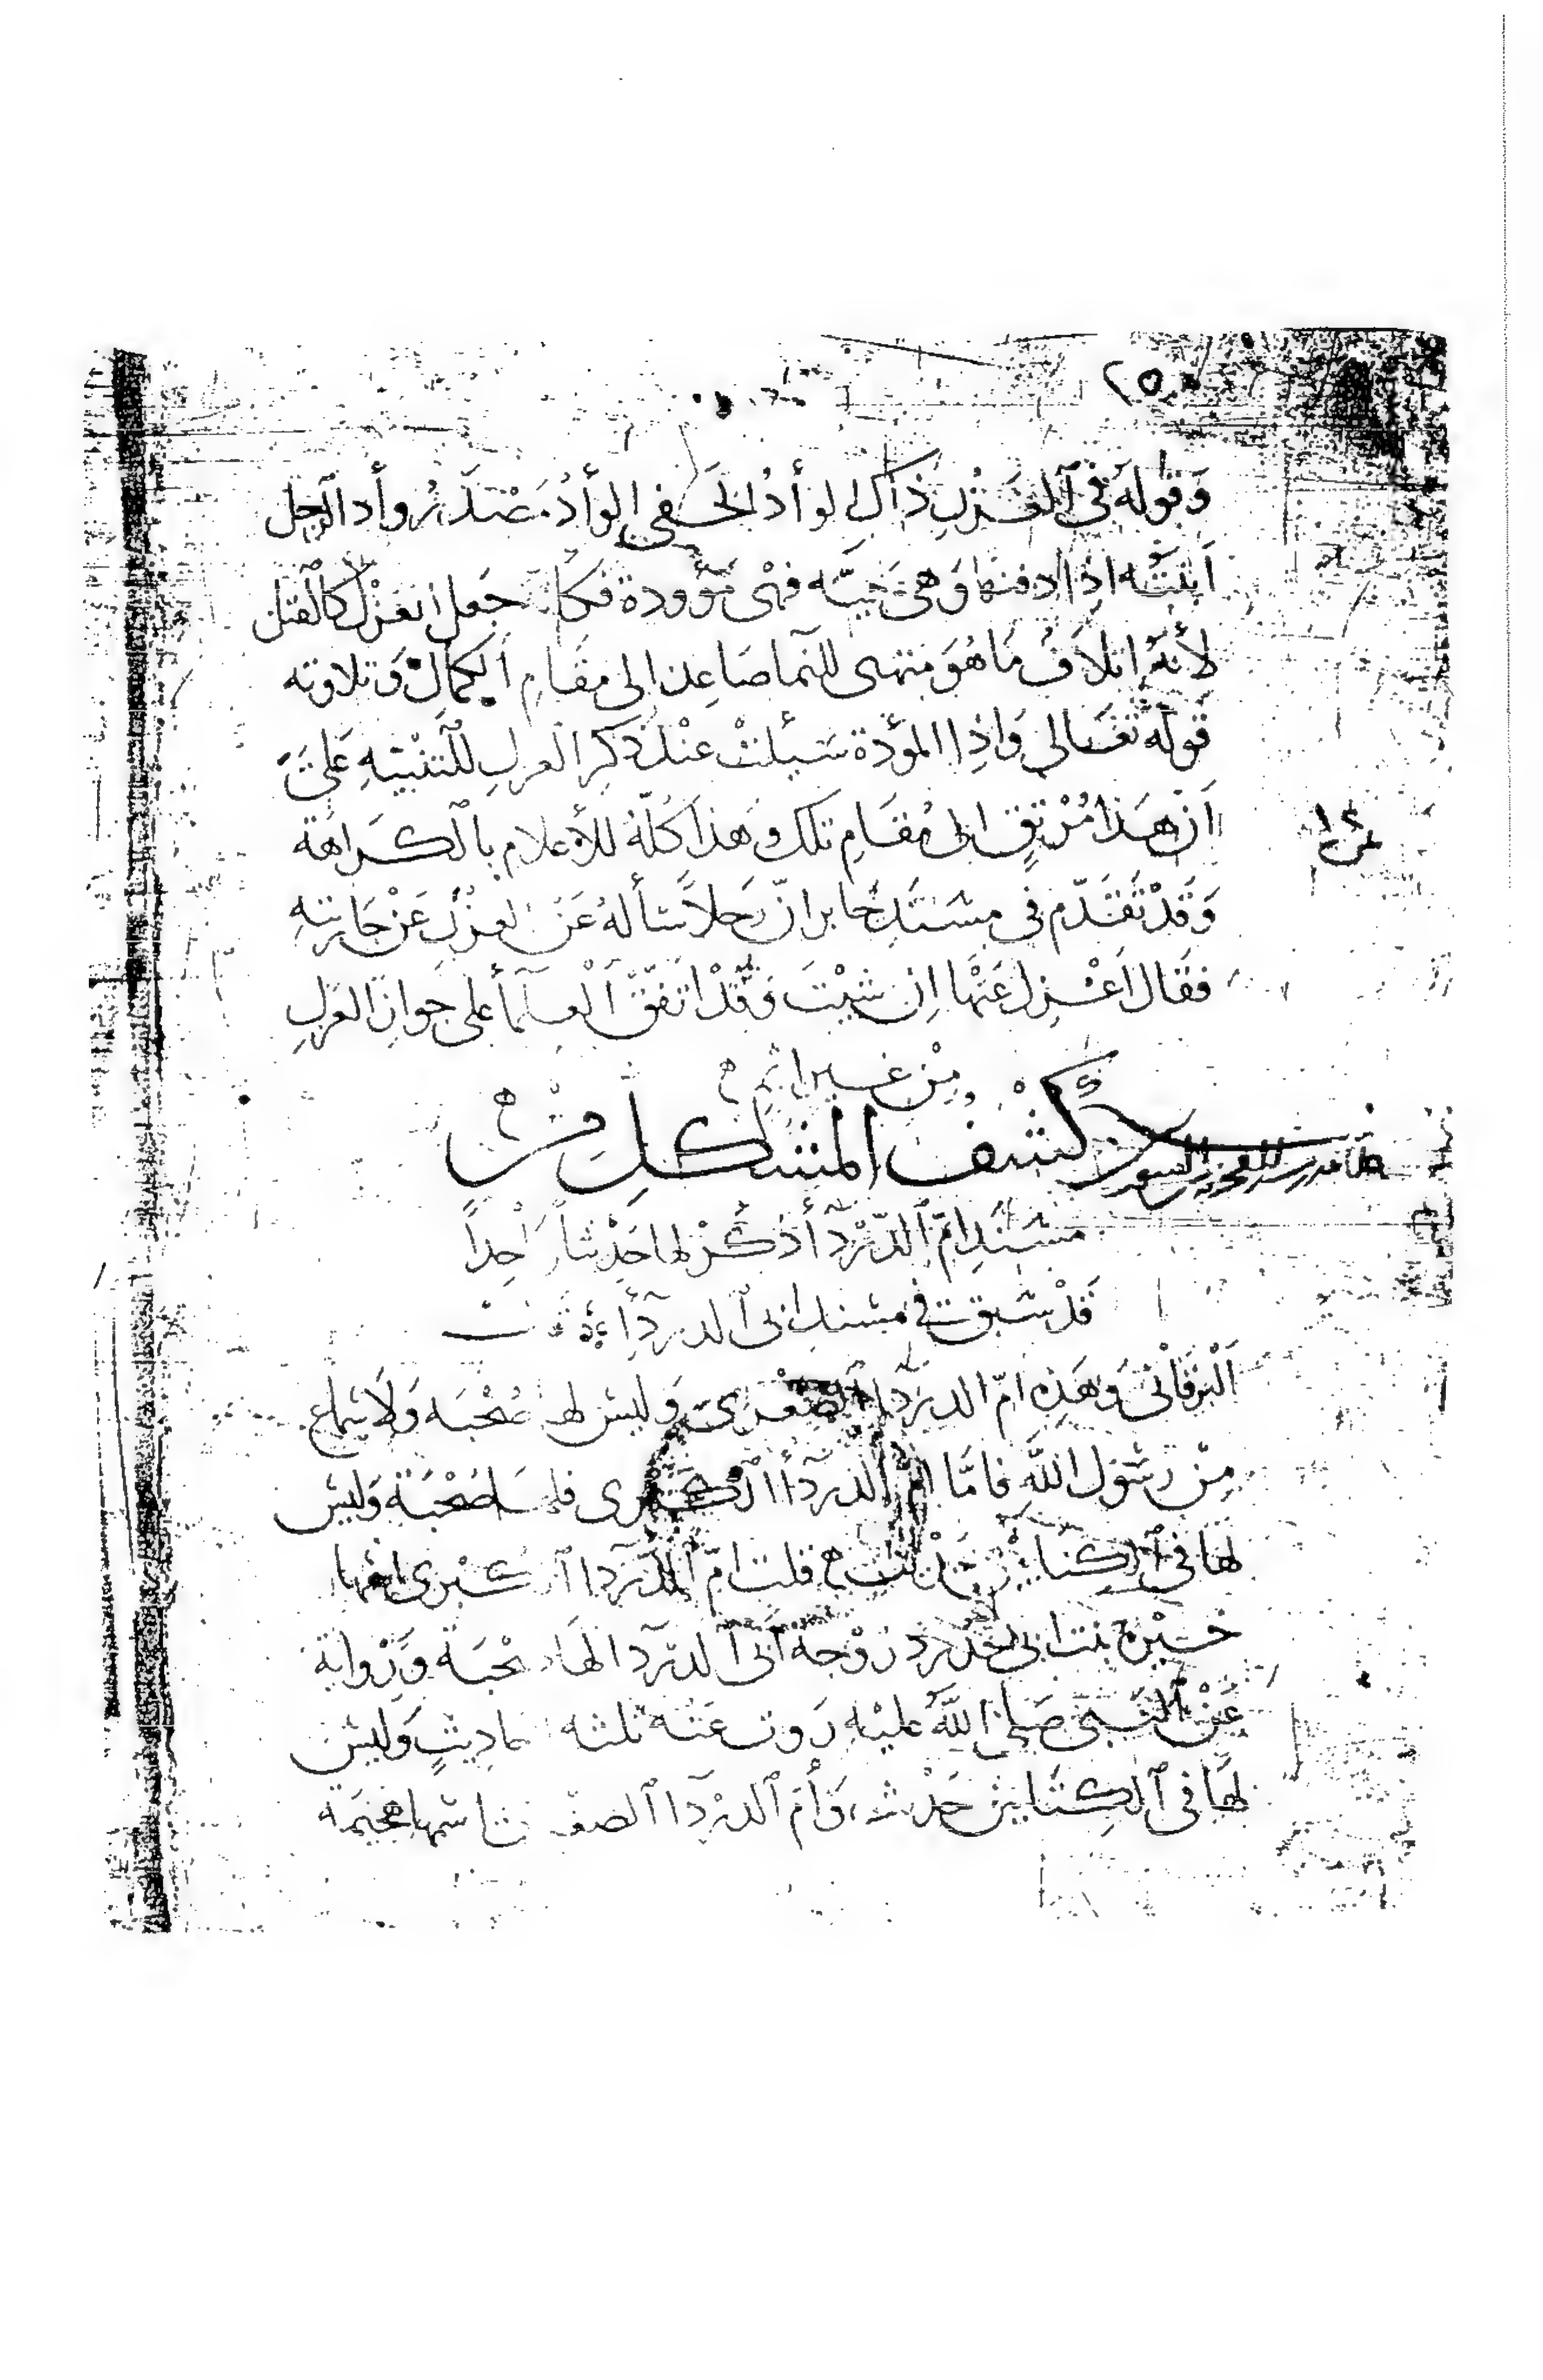 ٢٥٠
وَقوله في ٱلعَزْلِ ذاك الوأدُ الخَفي الوأدُ مَصْدَرُ وأد الرجل
ابنتَه اذا دفنها وَهي حَيّه فهْى مَوؤودة فكانّ جَعل العَزْل كالْقتل
لأنّهُ اتلافُ مَا هُوَ منتهى للنما صَاعدا الى مقَامِ الكمالْ وَتلاوته
قوله تعَالى وَاذا المؤدة سَئِلتْ عند ذكر العزلِ للْتنْبيْهِ عَلى
اَن هَذا مُرْتقٍ الى مُقَامِ تلك وَهَذا كُلّهُ للأعلام بالكَراهَة
وَقَدْ تَقَدّم في مسْنَدِ جَابر انّ رَجلاً سَأله عَن العزْل عَنْ جَاريتهِ
فقَال اَعْزل عَنْها اِن شيْت وَقدْ اتفقَ الْعلَمأ على جَوازِ العزلِ
مِنْ غَير اثم ه
كشف المشكل من
مسْنَدِ امّ ٱلدّرْدَآ أذكُرْ لها حَدْثيا وَاحِداً
قَدْ سَبق في مسْندِ ابى ٱلدردآءِ
اَلْبَرقانى وَهَذِه امّ الدردَآ الصّغْرى وَليسْ لها صُحْبَه وَلَا سَماع
مِنْ رسُول الله فامَّا امّ الدردآ ٱلكبْرى فلهَا صُحْبَة وَليسْ
لها في ٱلكتابيْن حَدْيث ه قلت امّ ٱلدّردآ ٱلكبْرى اسْمها
خيْره بنت ابى حَدْرد زوْجَة اَبى ٱلدرْدآ لهَا صحْبَة وَروايَة
عَنْ ٱلنبىّ صَلى اللهَ عليْه رَوت عَنْه ثلثه احَاديثٍ وَليسْ
لهَا في ٱلكتَابينْ حَدْيث، وَأم ٱلدرْدآ ٱلصغْرى اسْمها هجيمَة